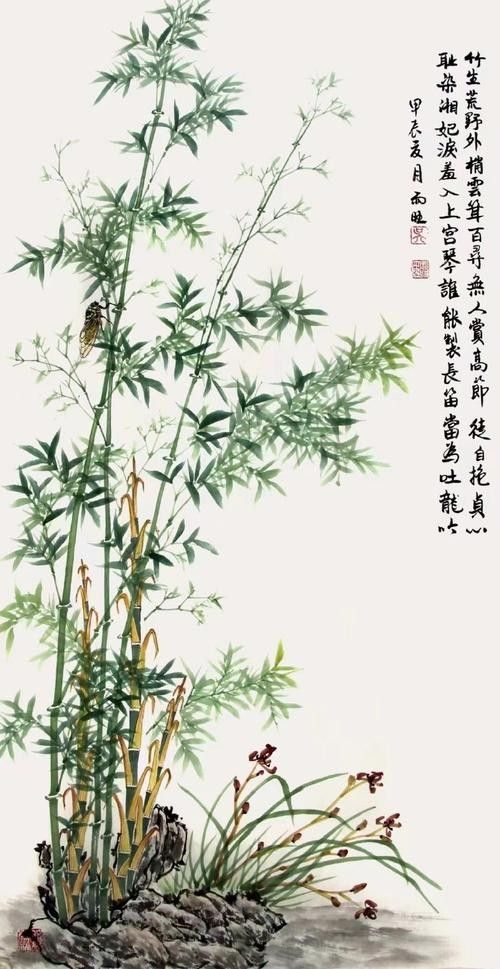 竹生荒野外梢雲耸百尋無人賞高節徒自抱貞心
耻染湘妃淚羞入上宮琴誰能製長笛當為吐龍吟
甲辰夏月雨旺